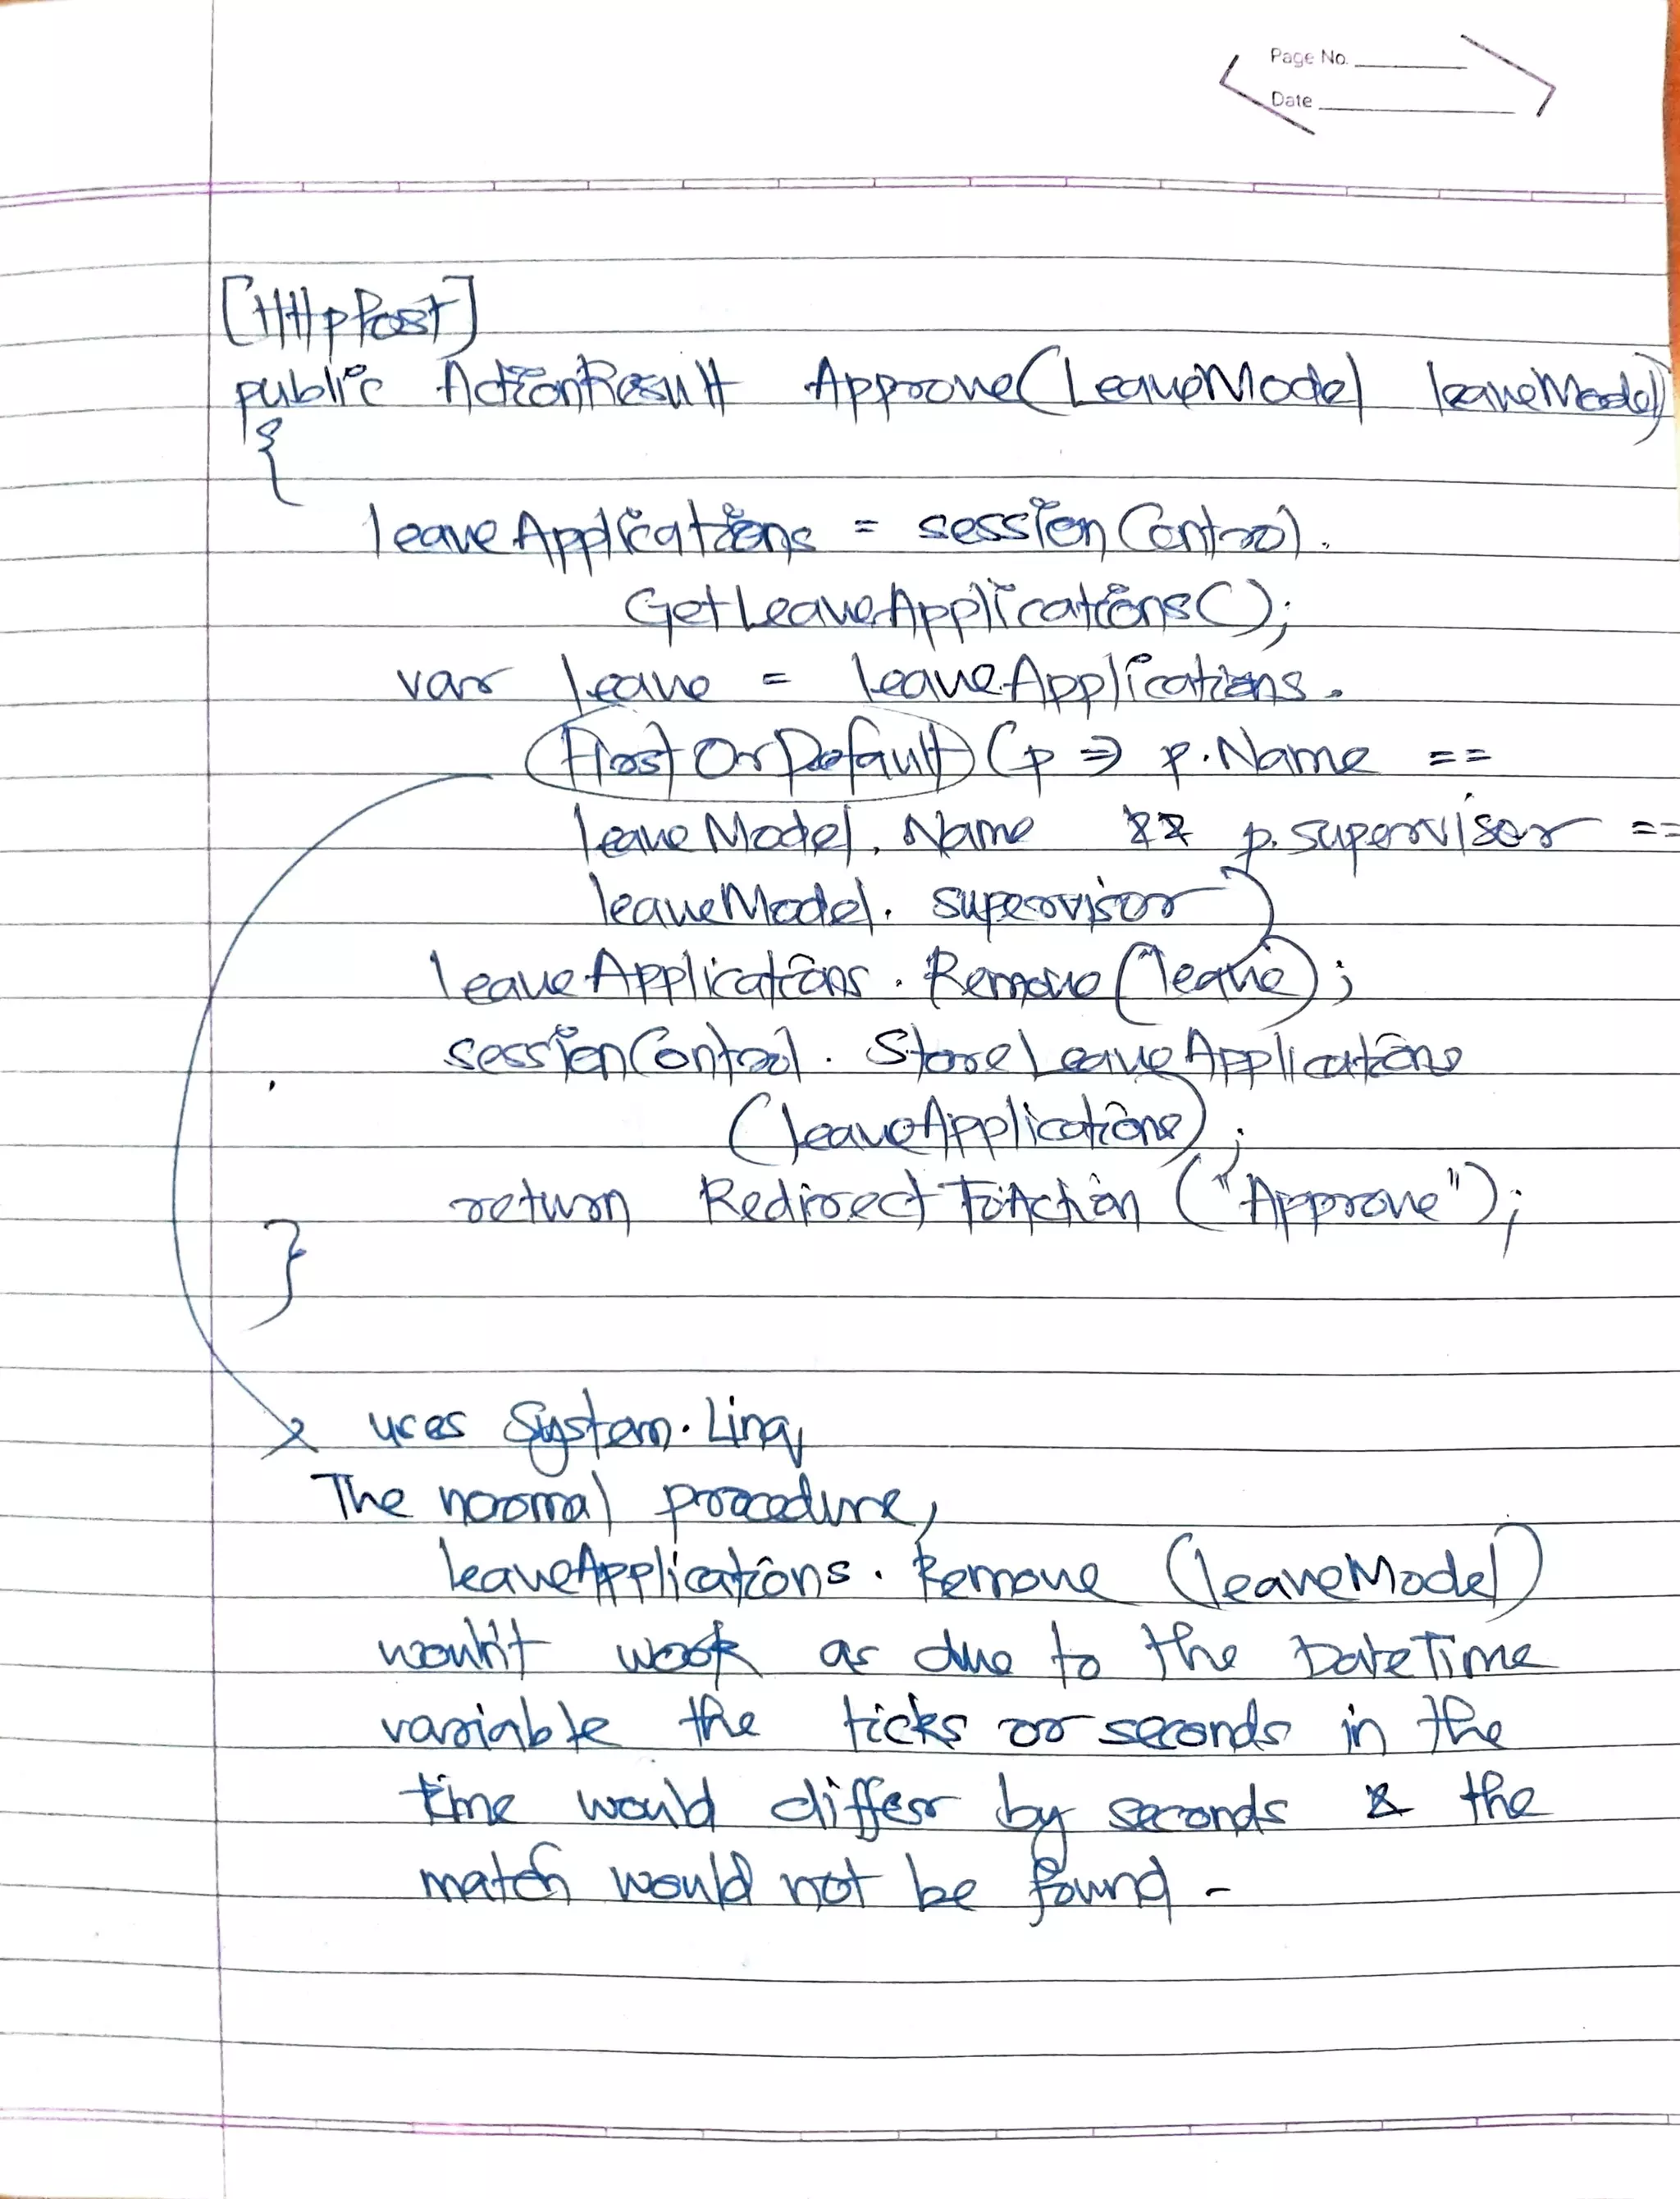 Page No.
Date
[HttpPost]
public ActionResult Approve(LeaveModel leaveModel)
{
leaveApplications = sessionControl.
GetLeaveApplications();
var leave = leaveApplications.
FirstOrDefault(p => p.Name ==
leaveModel.Name && p.supervisor ==
leaveModel.supervisor)
leaveApplications.Remove(leave);
sessionControl.StoreLeaveApplications
(leaveApplications);
return RedirectToAction("Approve");
}
uses System.Linq
The normal procedure,
leaveApplications.Remove(leaveModel)
won't work as due to the DateTime
variable the ticks or seconds in the
time would differ by seconds & the
match would not be found.